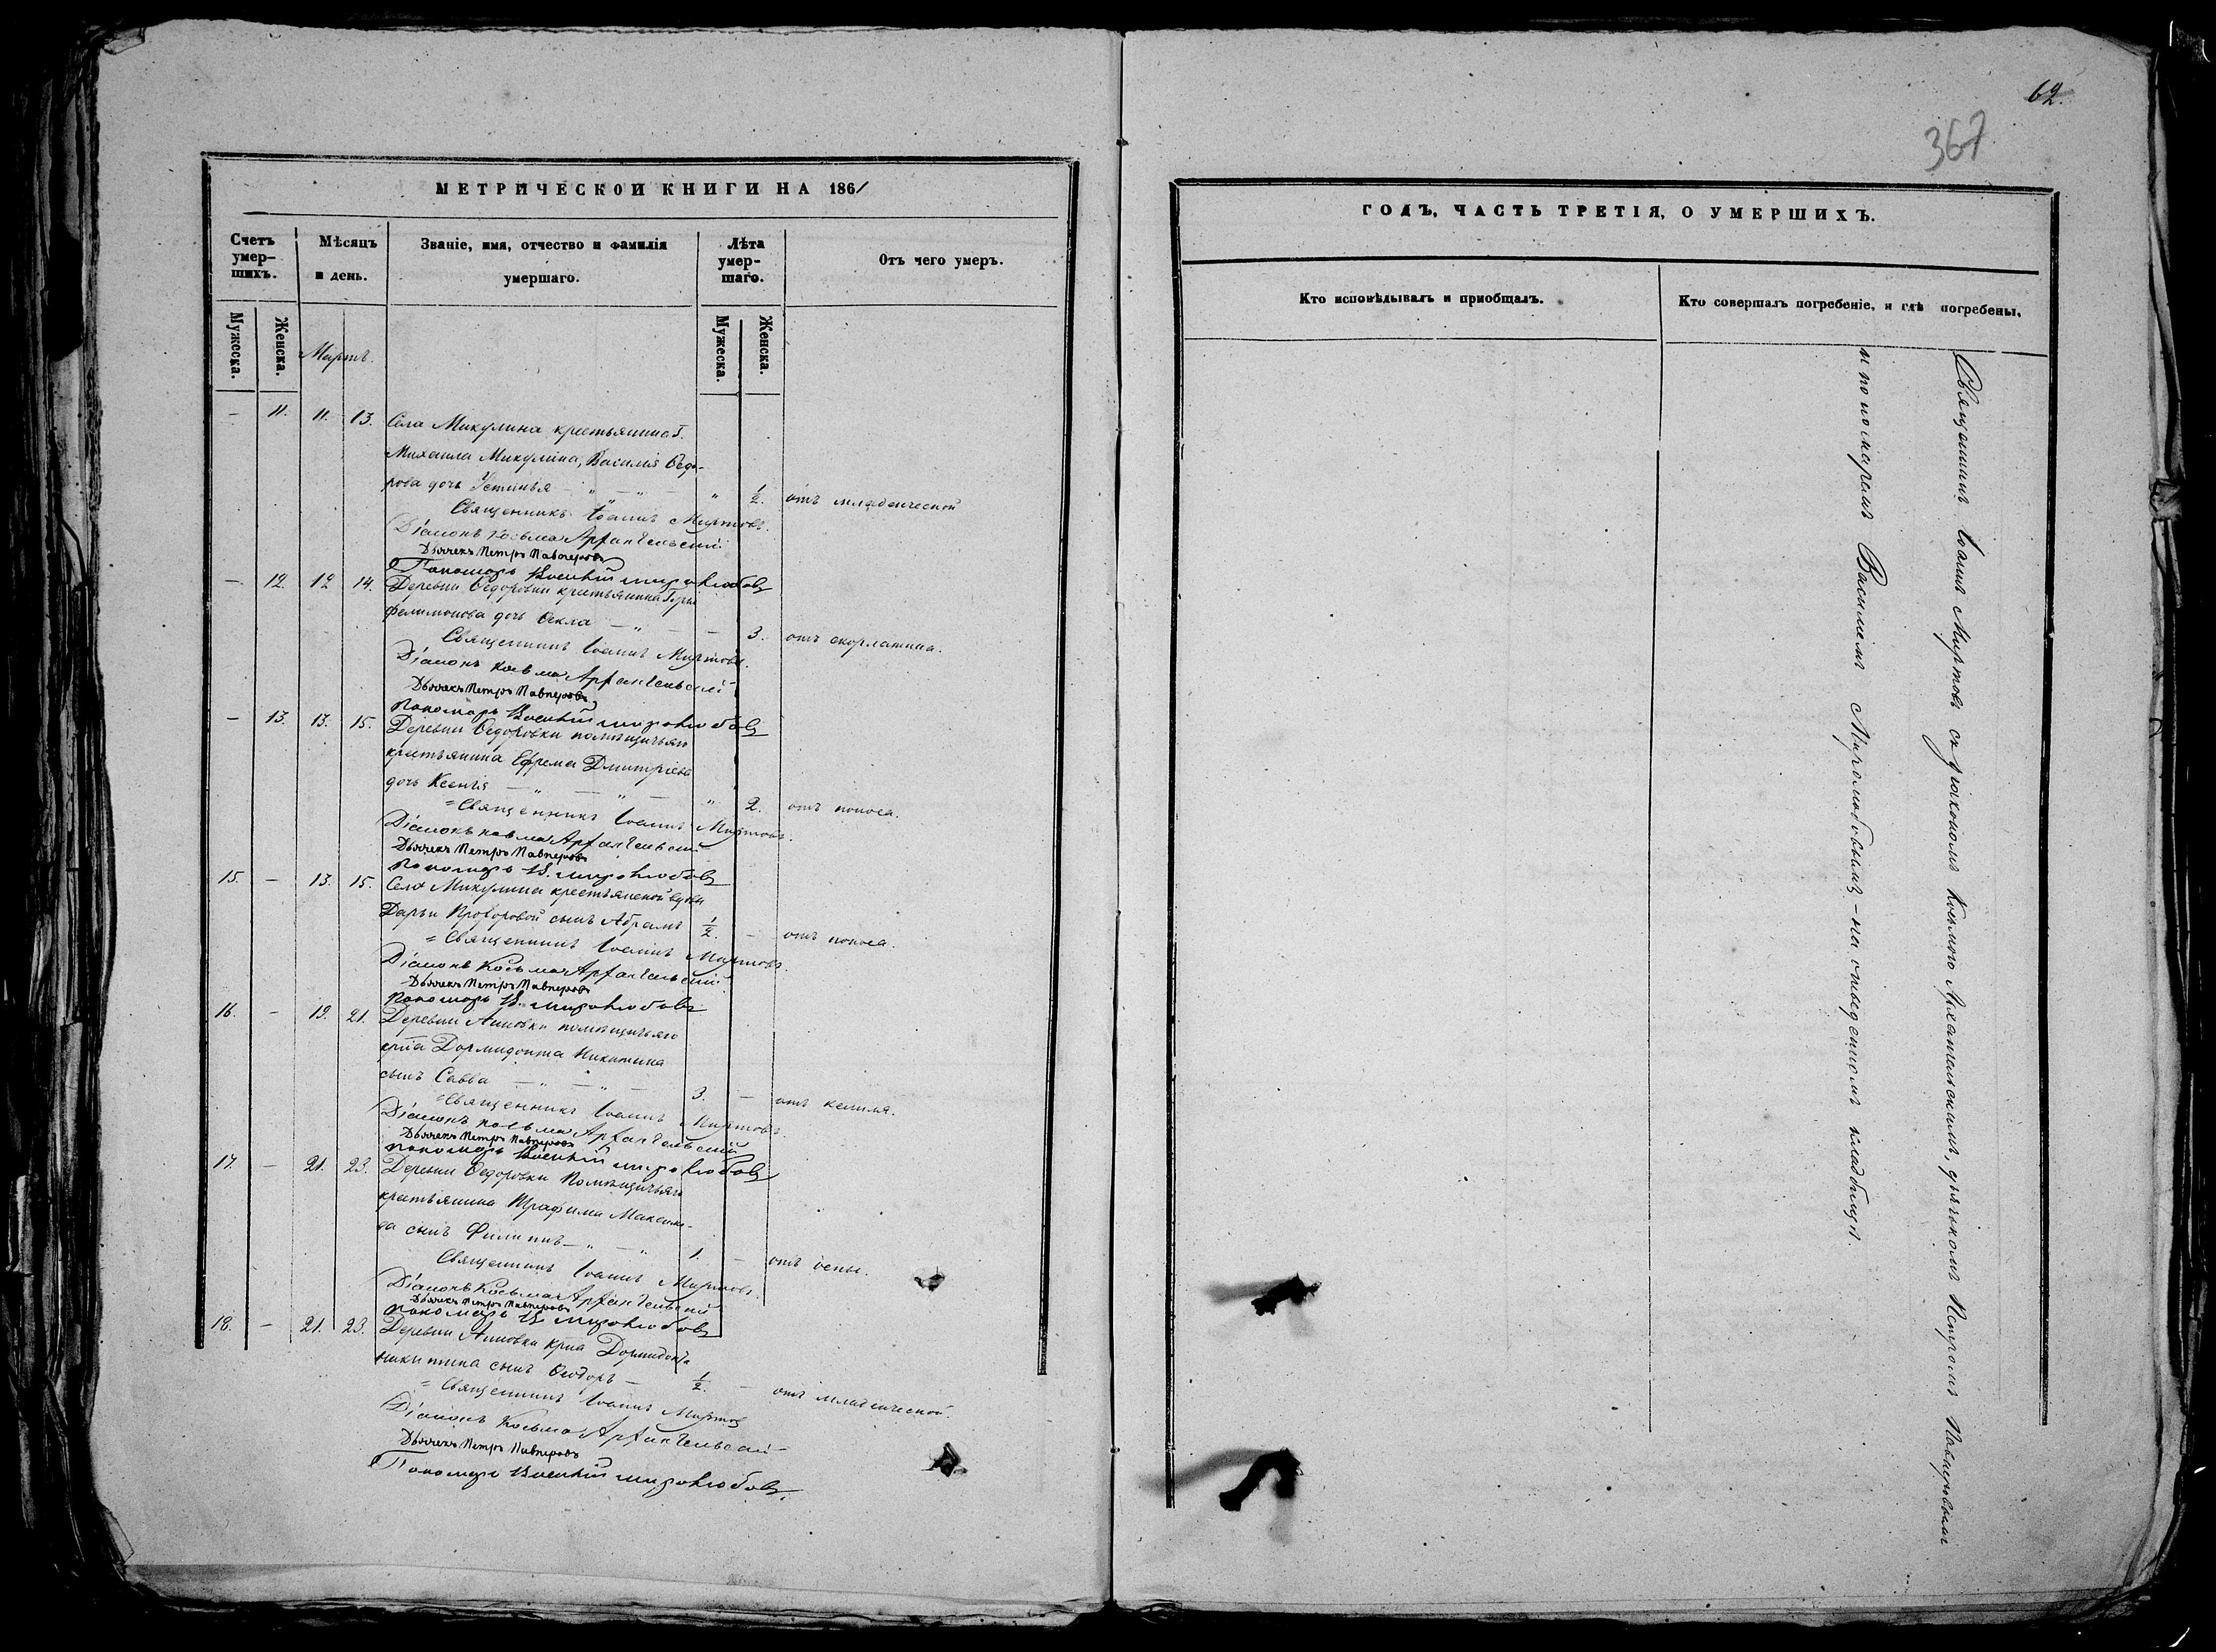 МЕТРИЧЕСКОЙ КНИГИ НА 1861
Счетъ умер-
шихъ.
Мѣсяцъ
и день.
Званіе, имя, отчество и фамилія
умершаго.
Лѣта
умер-
шаго.
Отъ чего умеръ.
Мужеска.
Женска.
Мартъ.
Мужеска.
Женска.
— 11. 11. 13. Села Микулина крестьянина Г.
Михаила Микулина, Василія Ѳедо-
рова дочь Устинья — " — " — " ½. отъ младенческой
Священникъ Іоаннъ Миртовъ.
Діаконъ Косьма Архангельскій
Дьячекъ Петръ Павперовъ
Пономарь Василій Миролюбовъ
— 12. 12 14. Деревни Ѳедоровки крестьянина
Филимонова дочь Ѳекла — " — — 3. отъ скорлатина.
Священникъ Іоаннъ Миртовъ.
Діаконъ Косьма Архангельскій
Дьячекъ Петръ Павперовъ
Пономарь Василій Миролюбовъ
— 13. 13. 15. Деревни Ѳедоровки помѣщичьяго
крестьянина Ефрема Дмитріева
дочь Ксенія — " — " — " 2. отъ поноса.
Священникъ Іоаннъ Миртовъ.
Діаконъ Косьма Архангельскій
Дьячекъ Петръ Павперовъ
Пономарь В. Миролюбовъ
15. — 13. 15. Села Микулина крестьянской вдовы
Дарьи Прохоровой сынъ Абрамъ ½. — отъ поноса.
Священникъ Іоаннъ Миртовъ.
Діаконъ Косьма Архангельскій
Дьячекъ Петръ Павперовъ
Пономарь В. Миролюбовъ
16. — 19. 21. Деревни Анновки помѣщичьяго
крна Дормидонта Никитина
сынъ Савва — " — " — 3. — отъ кашля.
Священникъ Іоаннъ Миртовъ.
Діаконъ Косьма Архангельскій
Дьячекъ Петръ Павперовъ
Пономарь Василій Миролюбовъ
17. — 21. 23. Деревни Ѳедоровки Помѣщичьяго
крестьянина Трафима Максимо-
ва сынъ Филиппъ — " — " 1. — отъ оспы.
Священникъ Іоаннъ Миртовъ.
Діаконъ Косьма Архангельскій
Дьячекъ Петръ Павперовъ
Пономарь В. Миролюбовъ
18. — 21. 23. Деревни Анновки крна Дормидонта
Никитина сынъ Ѳеодоръ — ½. — отъ младенческой.
Священникъ Іоаннъ Миртовъ
Діаконъ Косьма Архангельскій
Дьячекъ Петръ Павперовъ
Пономарь Василій Миролюбовъ.
62.
367
ГОДЪ, ЧАСТЬ ТРЕТІЯ, О УМЕРШИХЪ.
Кто исповѣдывалъ и пріобщалъ.
Кто совершалъ погребеніе, и гдѣ погребены.
Священникъ Іоаннъ Миртовъ съ діакономъ Косьмою Архангельскимъ, дьячкомъ Петромъ Павперовымъ
и пономаремъ Василіемъ Миролюбовымъ — на отведенномъ кладбищѣ.